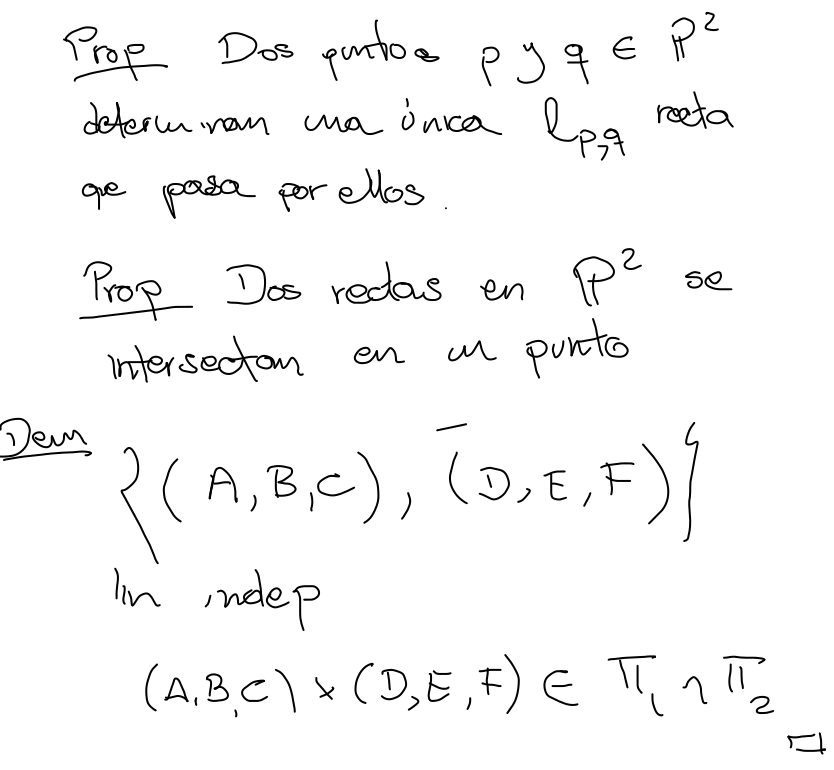 Prop Dos puntos p y q ∈ ℙ²
determinan una única ℓ_{p,q} recta
que pasa por ellos.
Prop Dos rectas en ℙ² se
intersectan en un punto
Dem {(A,B,C), (D,E,F)}
lin indep
(A,B,C) × (D,E,F) ∈ Π₁ ∩ Π₂
□